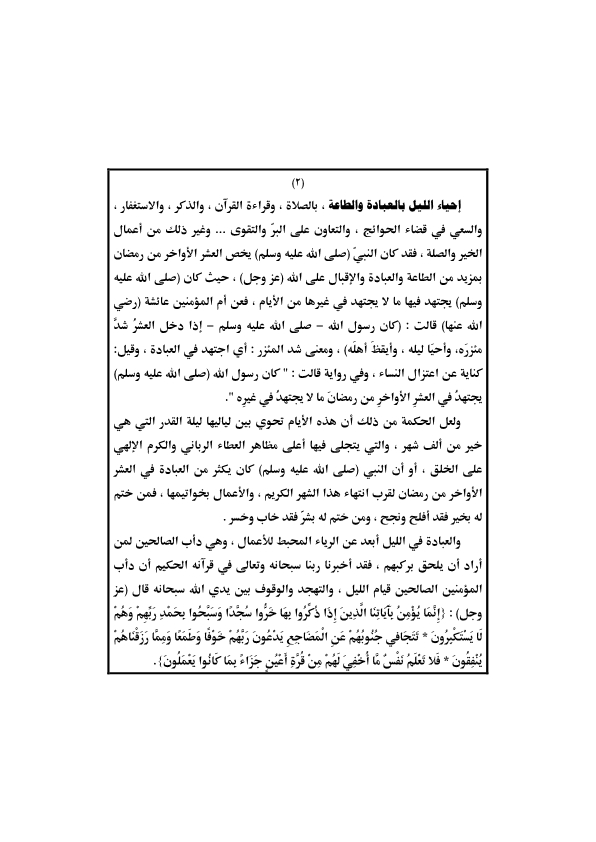 (٢)
إحياء الليل بالعبادة والطاعة ، بالصلاة ، وقراءة القرآن ، والذكر ، والاستغفار ،
والسعي في قضاء الحوائج ، والتعاون على البرّ والتقوى ... وغير ذلك من أعمال
الخير والصلة ، فقد كان النبيّ (صلى الله عليه وسلم) يخص العشر الأواخر من رمضان
بمزيد من الطاعة والعبادة والإقبال على الله (عز وجل) ، حيث كان (صلى الله عليه
وسلم) يجتهد فيها ما لا يجتهد في غيرها من الأيام ، فعن أم المؤمنين عائشة (رضي
الله عنها) قالت : (كان رسول الله – صلى الله عليه وسلم – إذا دخل العشرُ شدَّ
مئزرَه، وأحيَا ليله ، وأيقظَ أهلَه) ، ومعنى شد المئزر : أي اجتهد في العبادة ، وقيل:
كناية عن اعتزال النساء ، وفي رواية قالت : " كان رسول الله (صلى الله عليه وسلم)
يجتهدُ في العشرِ الأواخرِ من رمضانَ ما لا يجتهدُ في غيرِه ".
ولعل الحكمة من ذلك أن هذه الأيام تحوي بين لياليها ليلة القدر التي هي
خير من ألف شهر ، والتي يتجلى فيها أعلى مظاهر العطاء الرباني والكرم الإلهي
على الخلق ، أو أن النبي (صلى الله عليه وسلم) كان يكثر من العبادة في العشر
الأواخر من رمضان لقرب انتهاء هذا الشهر الكريم ، والأعمال بخواتيمها ، فمن ختم
له بخير فقد أفلح ونجح ، ومن ختم له بشرّ فقد خاب وخسر .
والعبادة في الليل أبعد عن الرياء المحبط للأعمال ، وهي دأب الصالحين لمن
أراد أن يلحق بركبهم ، فقد أخبرنا ربنا سبحانه وتعالى في قرآنه الحكيم أن دأب
المؤمنين الصالحين قيام الليل ، والتهجد والوقوف بين يدي الله سبحانه قال (عز
وجل) : {إِنَّمَا يُؤْمِنُ بِآيَاتِنَا الَّذِينَ إِذَا ذُكِّرُوا بِهَا خَرُّوا سُجَّدًا وَسَبَّحُوا بِحَمْدِ رَبِّهِمْ وَهُمْ
لَا يَسْتَكْبِرُونَ * تَتَجَافَى جُنُوبُهُمْ عَنِ الْمَضَاجِعِ يَدْعُونَ رَبَّهُمْ خَوْفًا وَطَمَعًا وَمِمَّا رَزَقْنَاهُمْ
يُنْفِقُونَ * فَلَا تَعْلَمُ نَفْسٌ مَّا أُخْفِيَ لَهُمْ مِنْ قُرَّةِ أَعْيُنٍ جَزَاءً بِمَا كَانُوا يَعْمَلُونَ} .